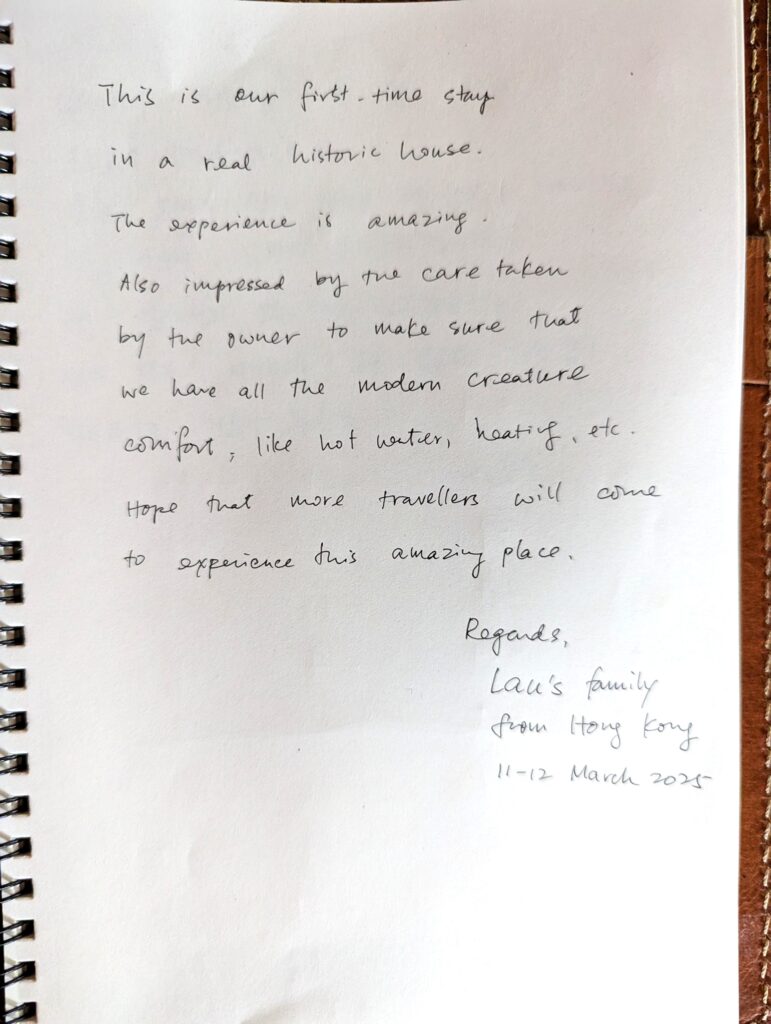 This is our first-time stay
in a real historic house.
The experience is amazing.
Also impressed by the care taken
by the owner to make sure that
we have all the modern creature
comfort, like hot water, heating, etc.
Hope that more travellers will come
to experience this amazing place.
Regards,
Lau's family
from Hong Kong
11-12 March 2025